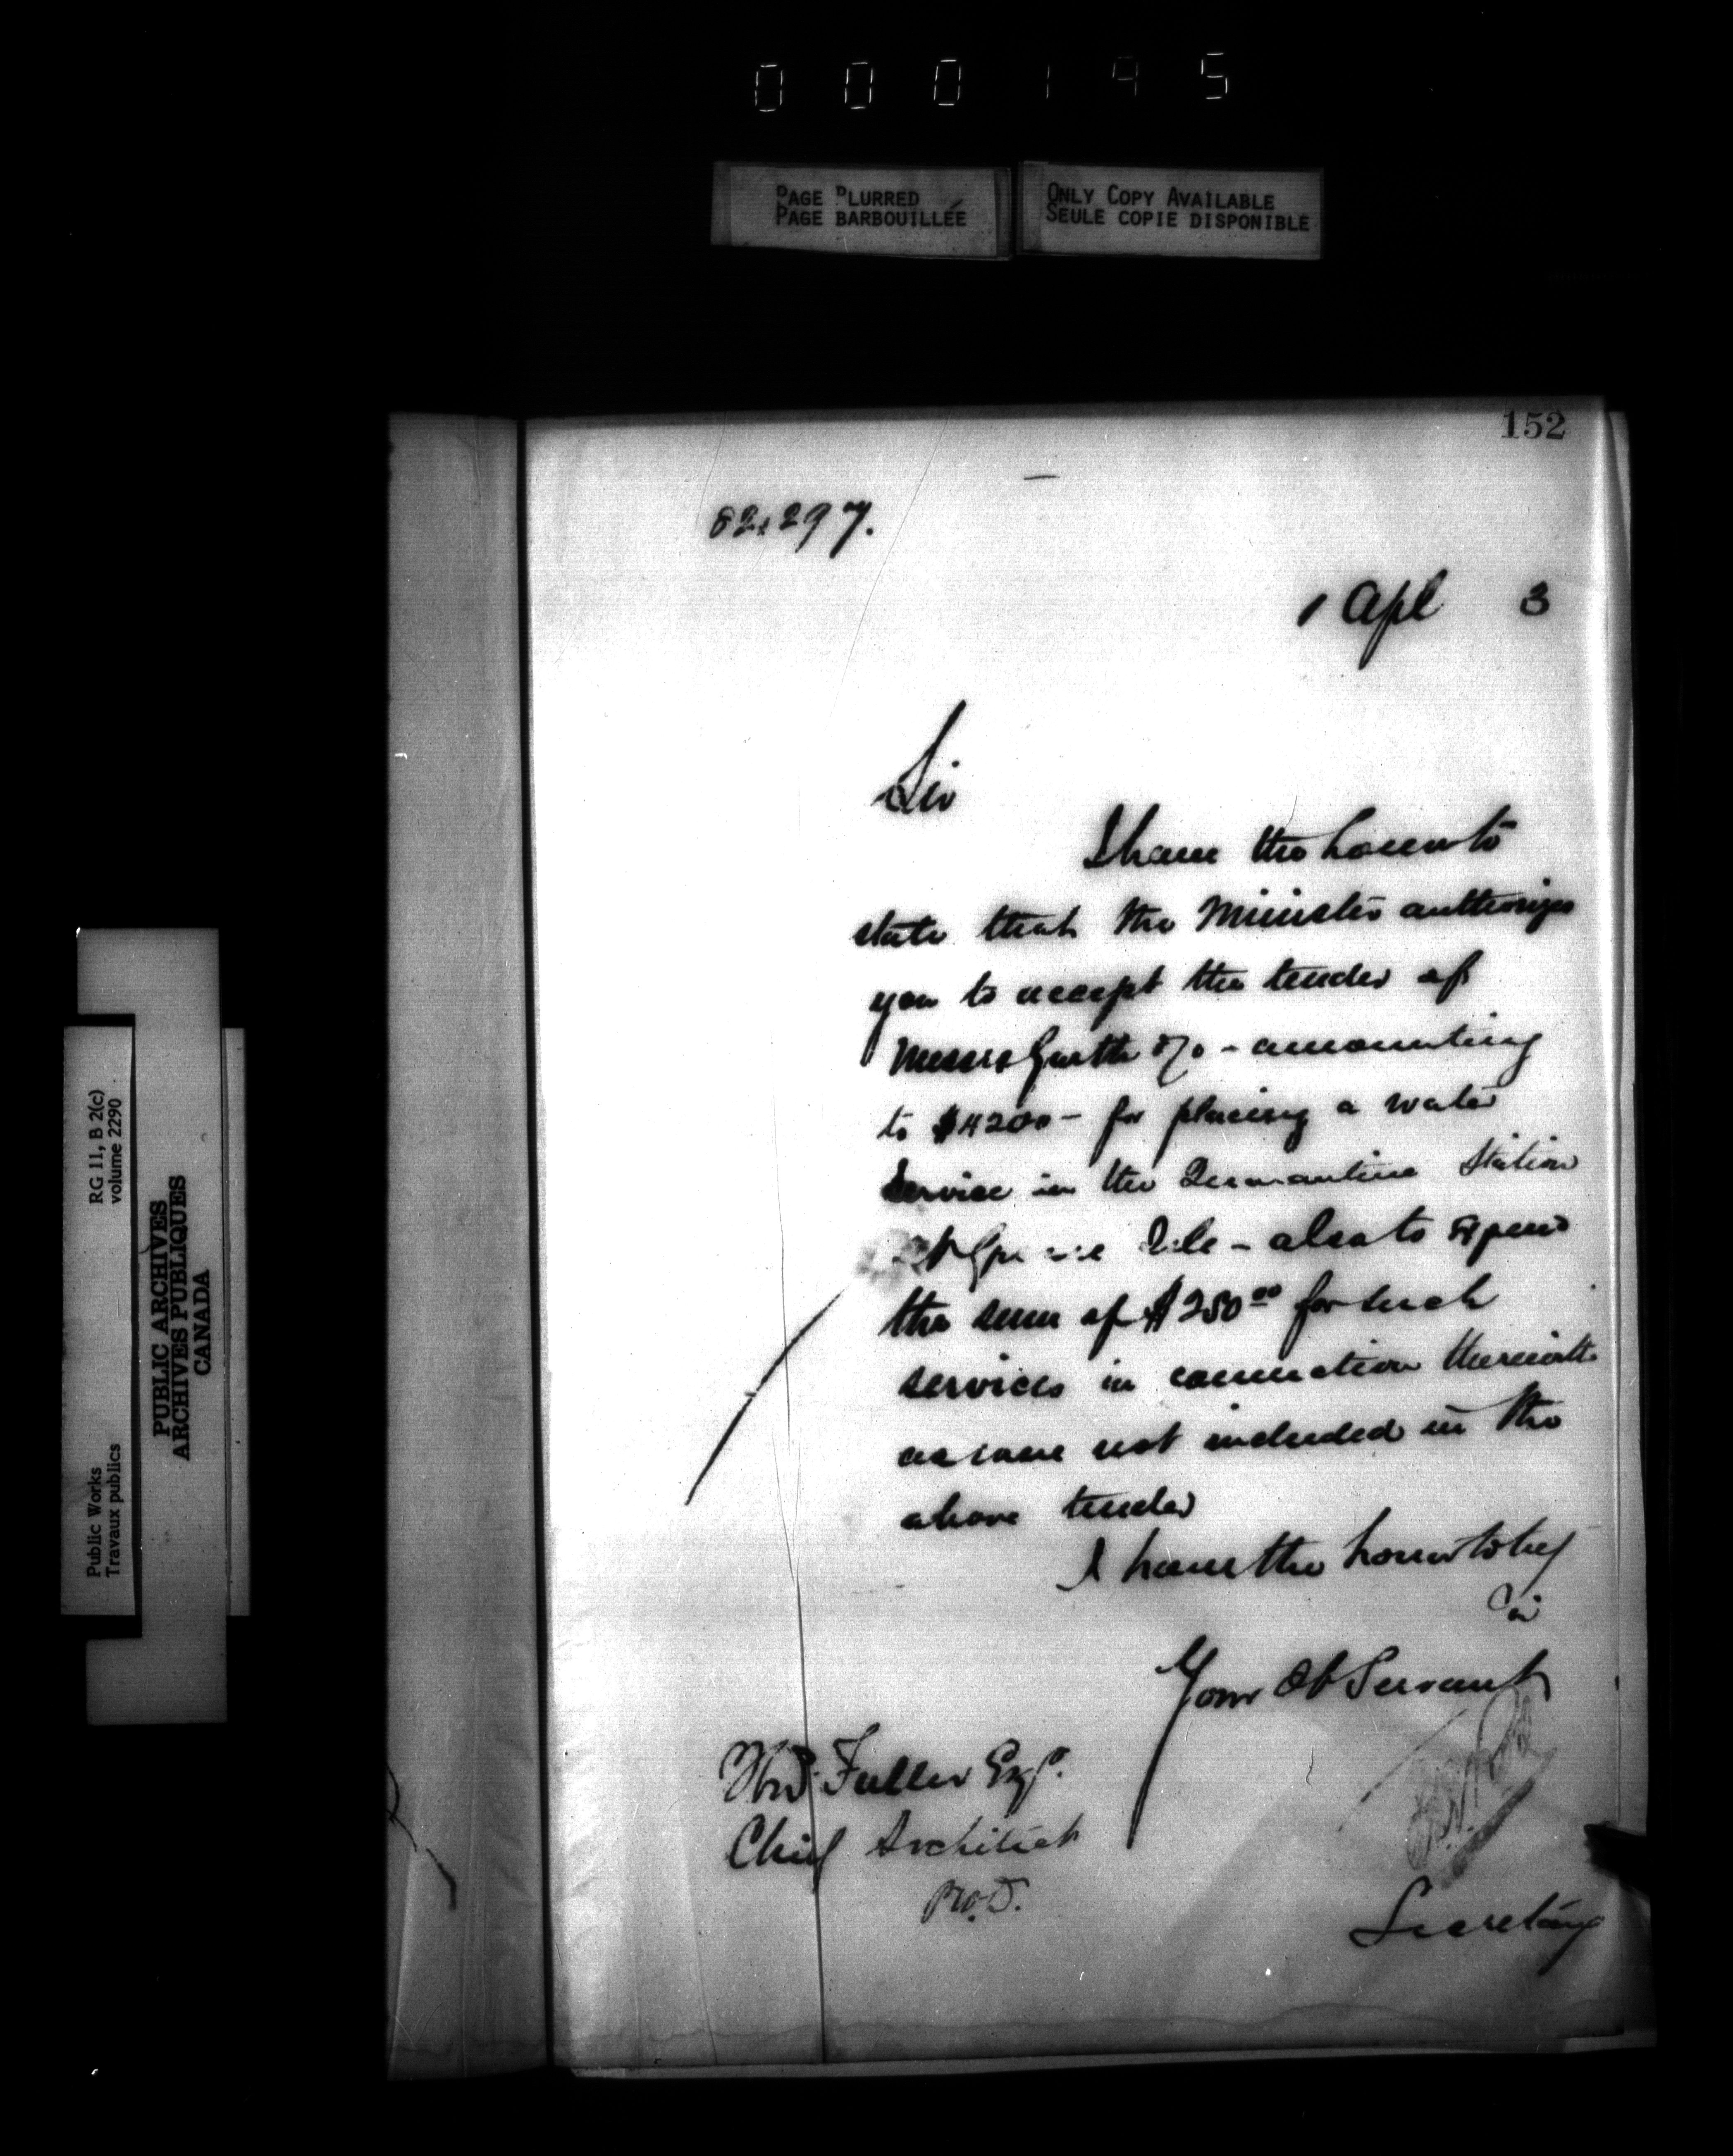 000195
PAGE BLURRED
PAGE BARBOUILLÉE
ONLY COPY AVAILABLE
SEULE COPIE DISPONIBLE
152
82,297.
1 Apl 3
Sir
I have the honour to
state that the Minister authorizes
you to accept the tender of
Messrs Garth &Co - amounting
to $4200 - for placing a water
Service in the Quarantine Station
at Grosse Isle - also to expend
the sum of $250.00 for such
services in connection therewith
as are not included in the
above tender
I have the honor to be
Sir
Your Ob Servant
Thos. Fuller Esqr.
Chief Architect
P.W.D.
Secretary
RG 11, B 2(c)
volume 2290
PUBLIC ARCHIVES
ARCHIVES PUBLIQUES
CANADA
Public Works
Travaux publics